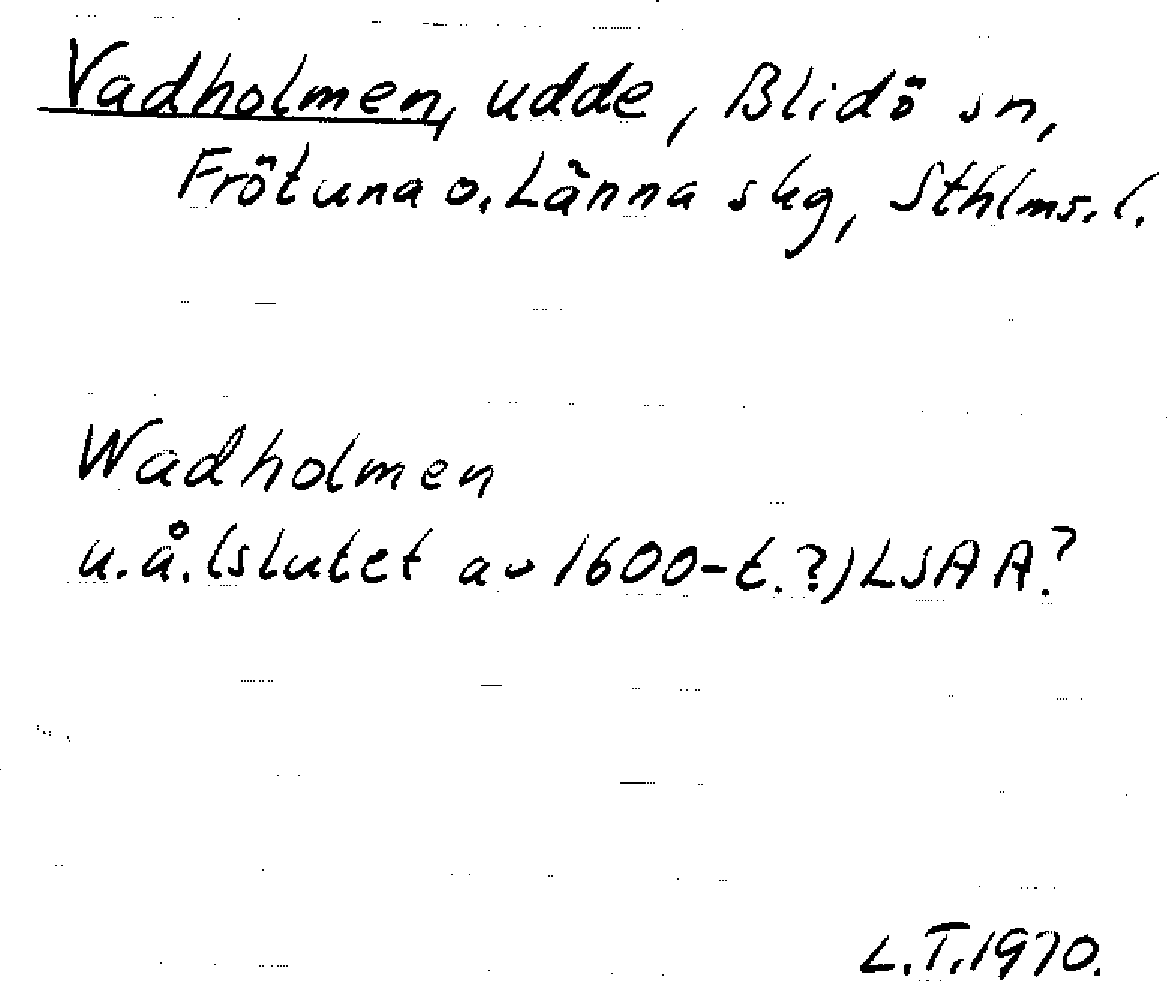 Vadholmen, udde, Blidö sn,
Frötuna o. Länna skg, Sthlms. l.
Wadholmen
u.å. (slutet av 1600-t.?) LSA A?
L.T. 1970.